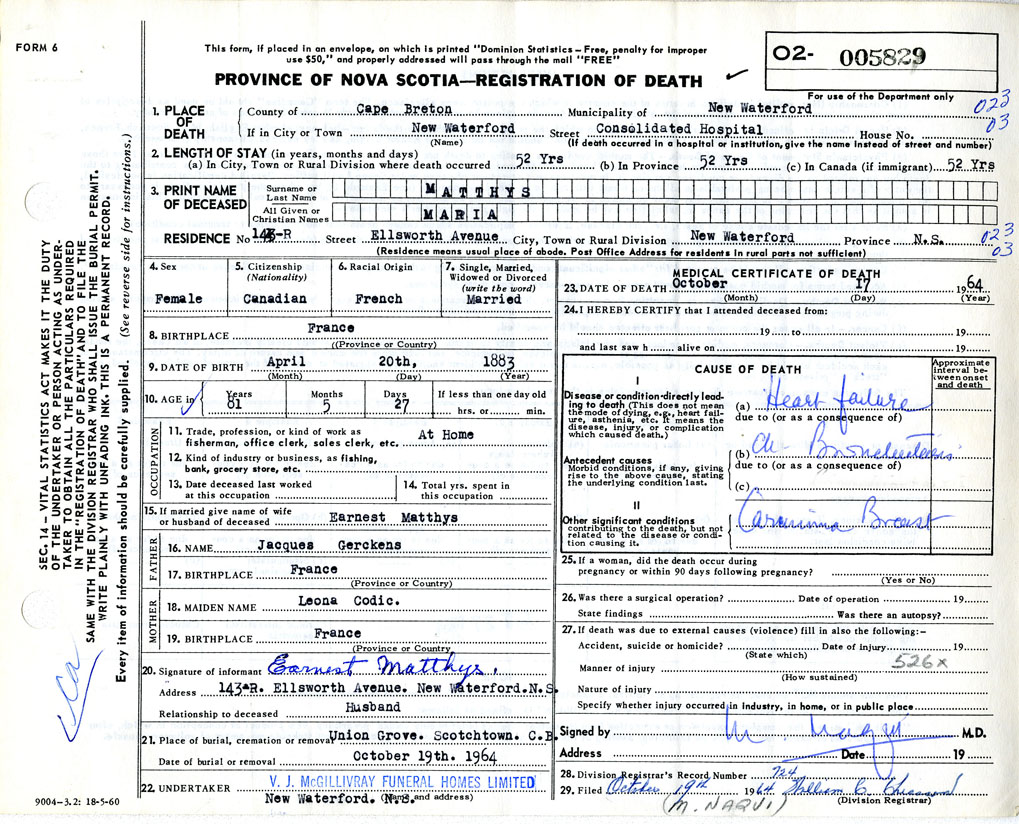 FORM 6
This form, if placed in an envelope, on which is printed "Dominion Statistics – Free, penalty for improper
use $50," and properly addressed will pass through the mail "FREE"
PROVINCE OF NOVA SCOTIA—REGISTRATION OF DEATH
O2- 005829
For use of the Department only
023
03
1. PLACE OF DEATH
County of Cape Breton Municipality of New Waterford
If in City or Town New Waterford Street Consolidated Hospital House No.
(Name) (If death occurred in a hospital or institution, give the name instead of street and number)
2. LENGTH OF STAY (in years, months and days)
(a) In City, Town or Rural Division where death occurred 52 Yrs (b) In Province 52 Yrs (c) In Canada (if immigrant) 52 Yrs
3. PRINT NAME OF DECEASED
Surname or Last Name MATTHYS
All Given or Christian Names MARIA
RESIDENCE No 143-R Street Ellsworth Avenue City, Town or Rural Division New Waterford Province N.S.
023
03
(Residence means usual place of abode. Post Office Address for residents in rural parts not sufficient)
4. Sex
Female
5. Citizenship
(Nationality)
Canadian
6. Racial Origin
French
7. Single, Married,
Widowed or Divorced
(write the word)
Married
8. BIRTHPLACE France
((Province or Country)
9. DATE OF BIRTH April 20th, 1883
(Month) (Day) (Year)
10. AGE in Years 81 Months 5 Days 27 If less than one day old
hrs. or min.
OCCUPATION
11. Trade, profession, or kind of work as
fisherman, office clerk, sales clerk, etc. At Home
12. Kind of industry or business, as fishing,
bank, grocery store, etc.
13. Date deceased last worked
at this occupation
14. Total yrs. spent in
this occupation
15. If married give name of wife
or husband of deceased Earnest Matthys
FATHER
16. NAME Jacques Gerckens
17. BIRTHPLACE France
(Province or Country)
MOTHER
18. MAIDEN NAME Leona Codic.
19. BIRTHPLACE France
(Province or Country
20. Signature of informant Earnest Matthys.
Address 143-R. Ellsworth Avenue. New Waterford. N.S.
Relationship to deceased Husband
21. Place of burial, cremation or removal Union Grove. Scotchtown. C.B.
Date of burial or removal October 19th. 1964
22. UNDERTAKER V. J. McGILLIVRAY FUNERAL HOMES LIMITED
New Waterford. N.S.
(Name and address)
9004–3.2: 18-5-60
MEDICAL CERTIFICATE OF DEATH
23. DATE OF DEATH October 17 1964
(Month) (Day) (Year)
24. I HEREBY CERTIFY that I attended deceased from:
19 to 19
and last saw h alive on 19
CAUSE OF DEATH
Approximate
interval be-
tween onset
and death
I
Disease or condition directly lead-
ing to death (This does not mean
the mode of dying, e.g., heart fail-
ure, asthenia, etc. It means the
disease, injury, or complication
which caused death.)
(a) Heart failure
due to (or as a consequence of)
Antecedent causes
Morbid conditions, if any, giving
rise to the above cause, stating
the underlying condition last.
(b) Ch
due to (or as a consequence of)
(c)
II
Other significant conditions
contributing to the death, but not
related to the disease or condi-
tion causing it.
Carcinoma Breast
25. If a woman, did the death occur during
pregnancy or within 90 days following pregnancy?
(Yes or No)
26. Was there a surgical operation? Date of operation 19
State findings Was there an autopsy?
27. If death was due to external causes (violence) fill in also the following:–
Accident, suicide or homicide? Date of injury 19
(State which)
526x
Manner of injury
(How sustained)
Nature of injury
Specify whether injury occurred in industry, in home, or in public place
Signed by M. Naqvi M.D.
Address Date 19
28. Division Registrar's Record Number 724
29. Filed October 19th 1964 William C. Chiasson
(Division Registrar)
(M. NAQUI)
SEC. 14 – VITAL STATISTICS ACT MAKES IT THE DUTY
OF THE UNDERTAKER OR PERSON ACTING AS UNDER-
TAKER TO OBTAIN ALL THE PARTICULARS REQUIRED
IN THE "REGISTRATION OF DEATH" AND TO FILE THE
SAME WITH THE DIVISION REGISTRAR WHO SHALL ISSUE THE BURIAL PERMIT.
WRITE PLAINLY WITH UNFADING INK. THIS IS A PERMANENT RECORD.
Every item of information should be carefully supplied. (See reverse side for instructions.)